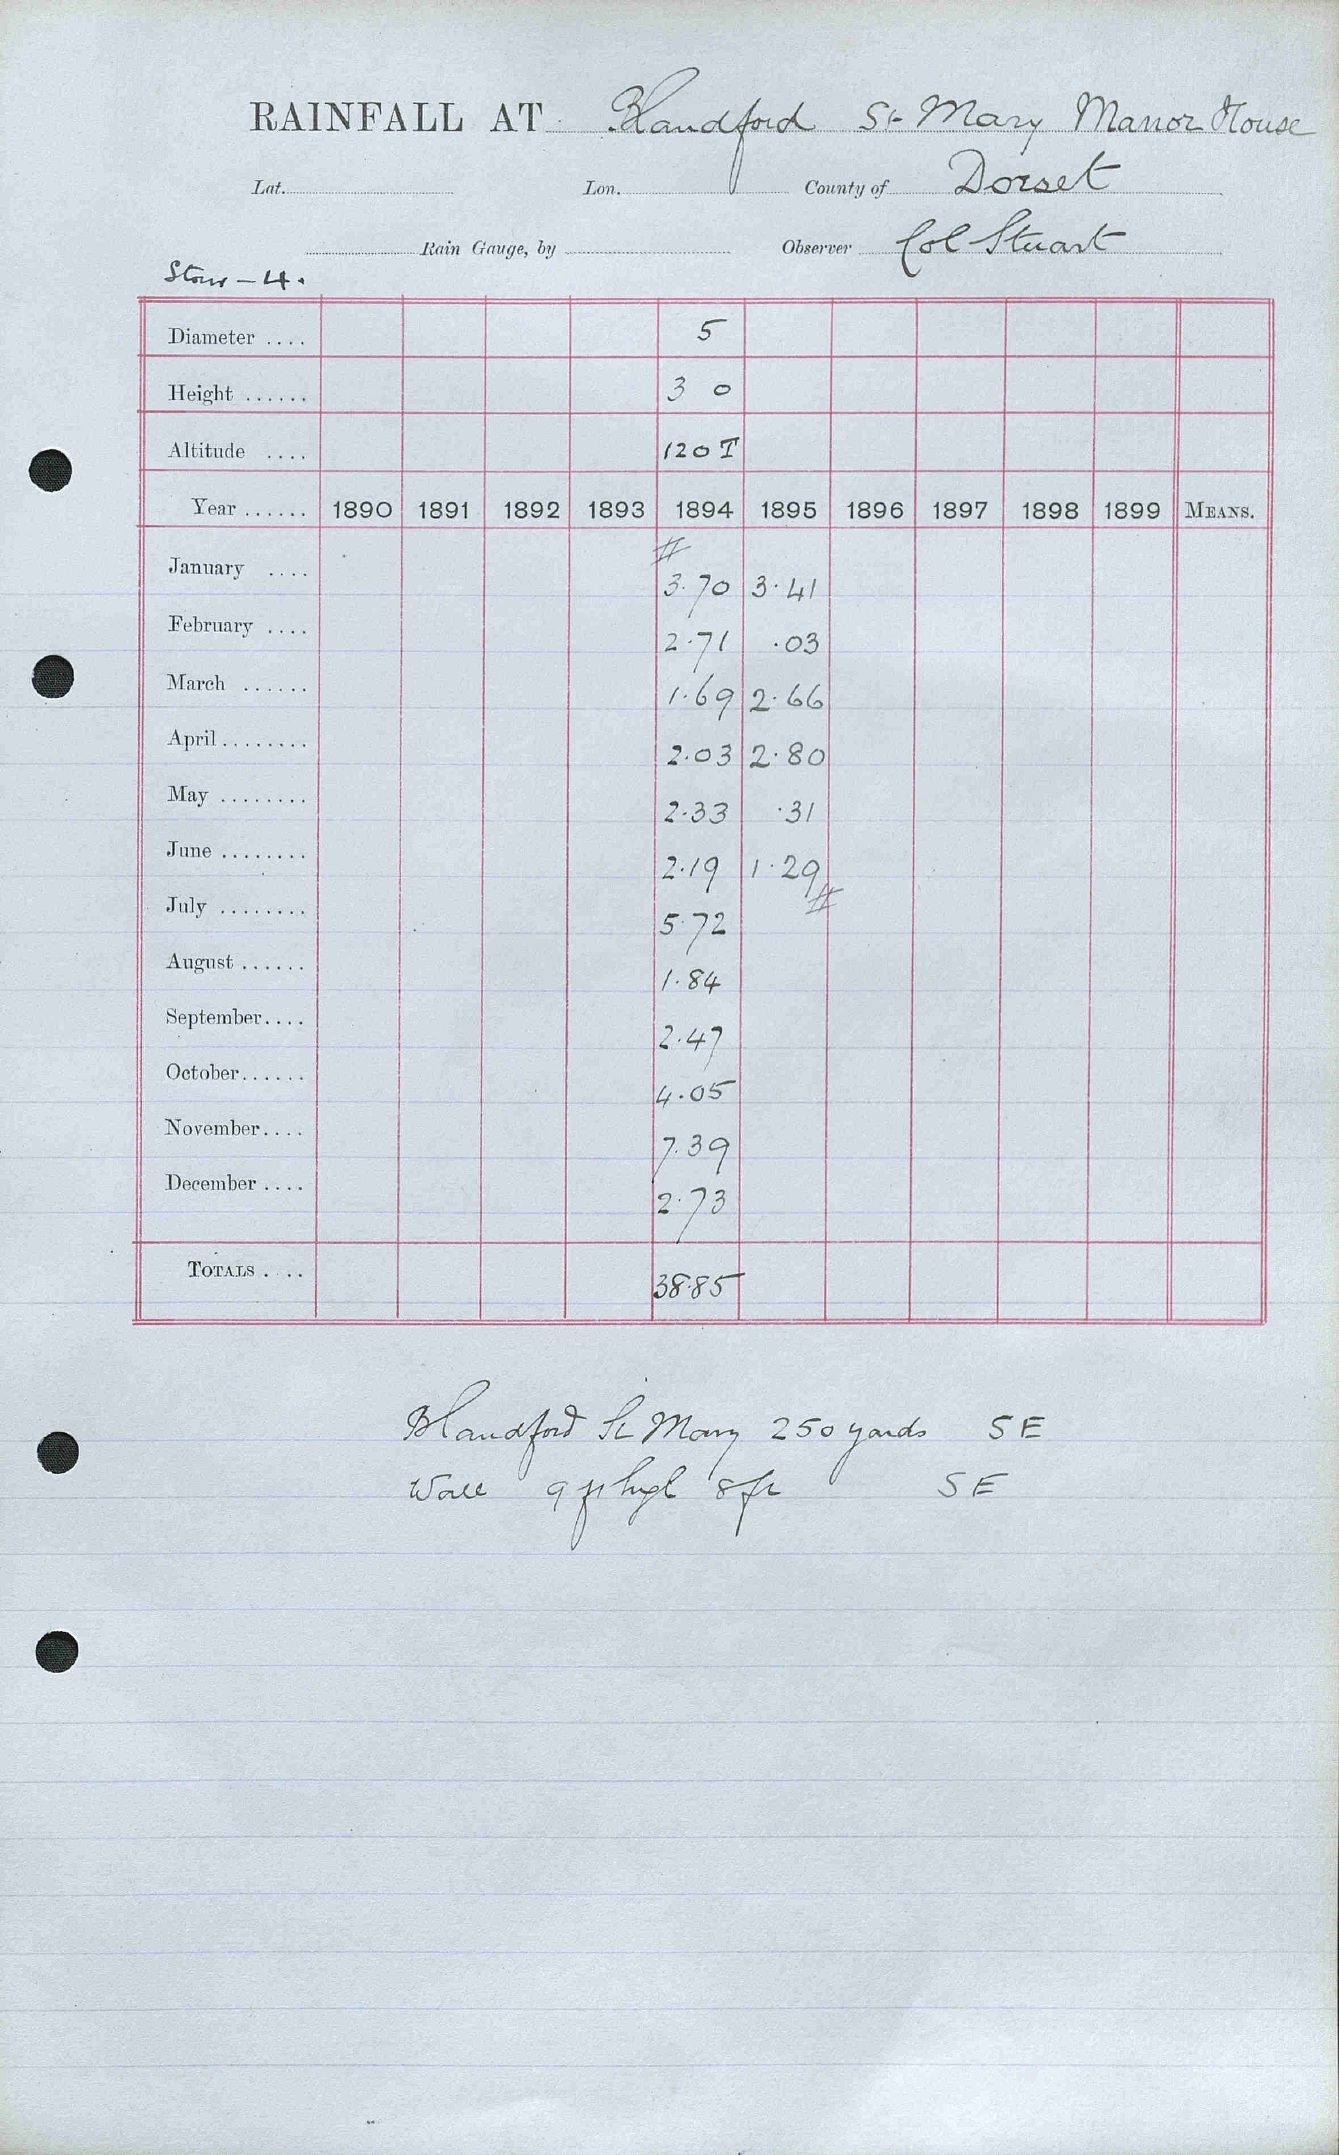 RAINFALL AT Blandford St Mary Manor House
Lat. Lon. County of Dorset
Rain Gauge, by Observer Col Stuart
Stour - 4.
Diameter .... 5
Height ...... 3 0
Altitude .... 120 T
Year ...... 1890 1891 1892 1893 1894 1895 1896 1897 1898 1899 MEANS.
#
January .... 3.70 3.41
February .... 2.71 .03
March ...... 1.69 2.66
April ........ 2.03 2.80
May ........ 2.33 .31
June ........ 2.19 1.29
#
July ........ 5.72
August ...... 1.84
September.... 2.47
October...... 4.05
November.... 7.39
December .... 2.73
TOTALS .... 38.85
Blandford St Mary 250 yards SE
Wall 9 ft high 8 ft SE